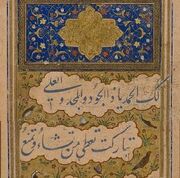 لك الحمد یا ذا الجود و المجد و العلی
تبارکت تعطی من تشاء و تمنع